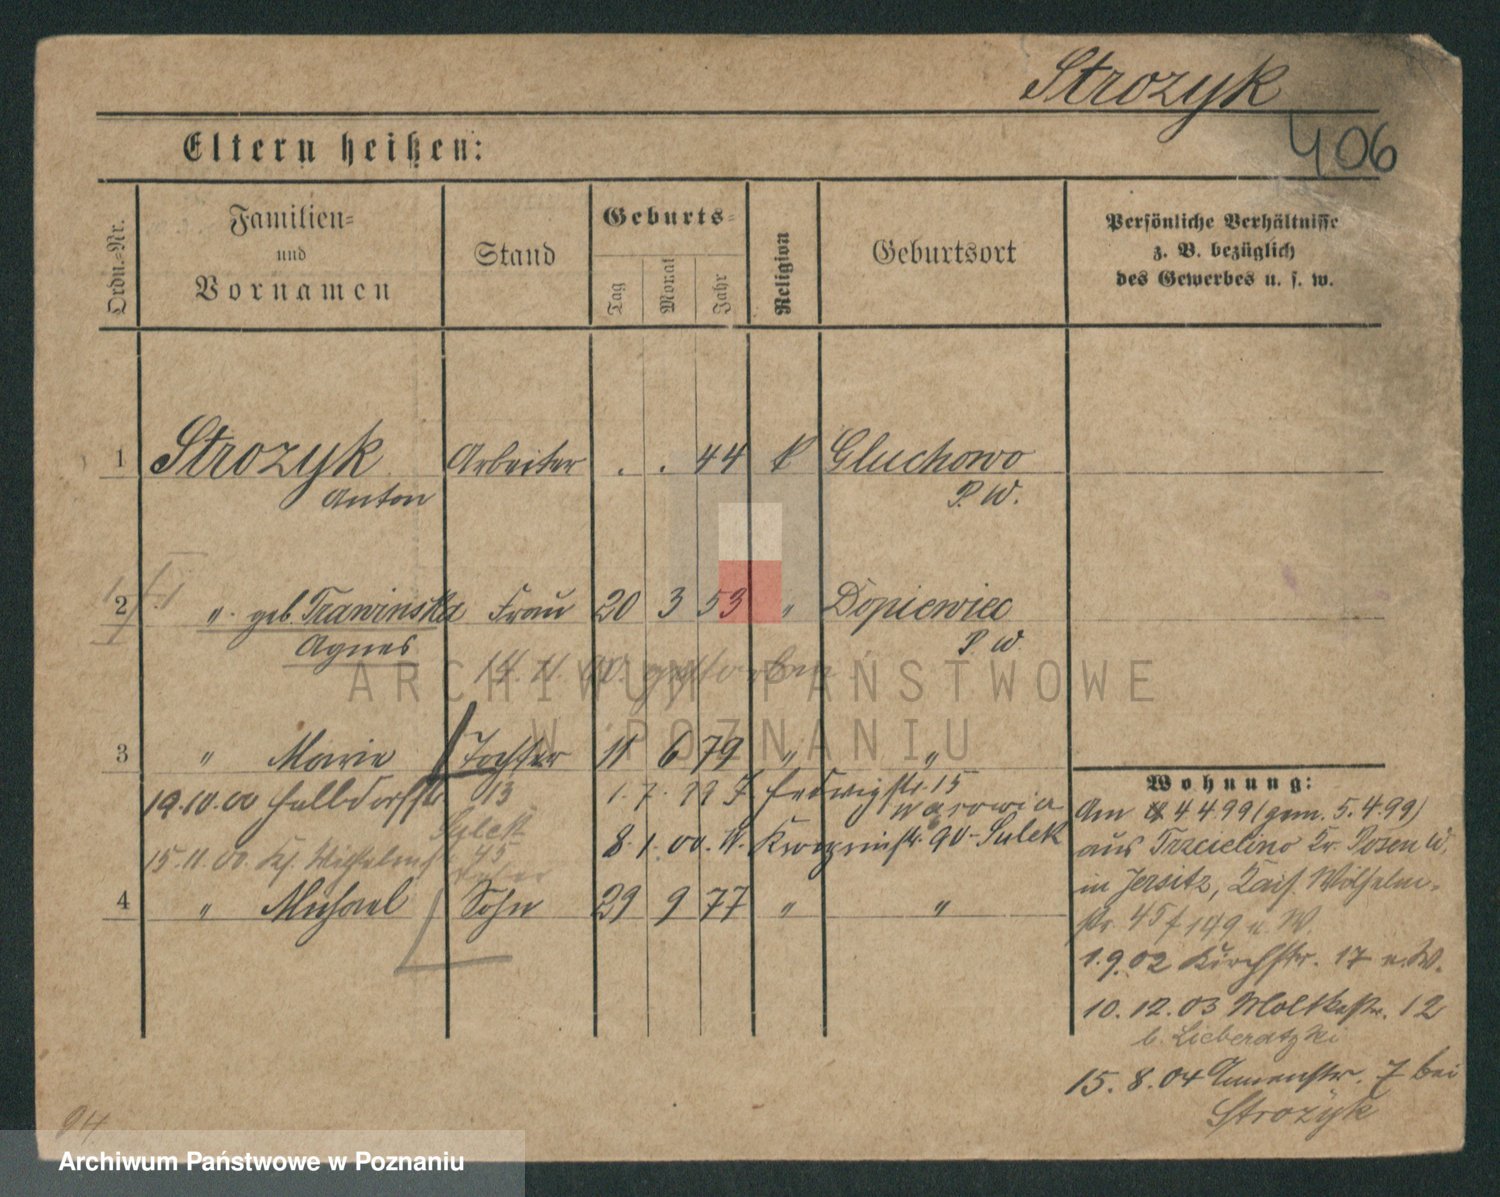 Strozyk
406
Eltern heißen:
Ordn.=Nr.
Familien=
und
Vornamen
Stand
Geburts=
Tag
Monat
Jahr
Religion
Geburtsort
Persönliche Verhältnisse
z. B. bezüglich
des Gewerbes u. s. w.
1 Strozyk Arbeiter . . 44 k Gluchowo
Anton P. W.
2 " geb. Trawinska Frau 20 3 53 " Dopiewiec
Agnes P. W.
14. 11. 00. gestorben
3 " Marie Tochter 11 6 79 " "
19.10.00 13 1. 7. 99 Hedwigstr. 15
8. 1. 00. W. 90 - Sulek
15.11.00. Ks. Wilhelmstr. 45
4 " Michael Sohn 29 9 77 " "
Wohnung:
Am 4.4.99 (gem. 5.4.99)
aus Trzcielino Kr. Posen W.
in Jersitz, Kais. Wilhelm-
str. 45 f 149 u. W.
1.9.02 Kirchstr. 17 u. W.
10.12.03 Moltkestr. 12
b. Lieberatzki
15.8.04 7 bei
Strozyk
94
ARCHIWUM PAŃSTWOWE
W POZNANIU
Archiwum Państwowe w Poznaniu